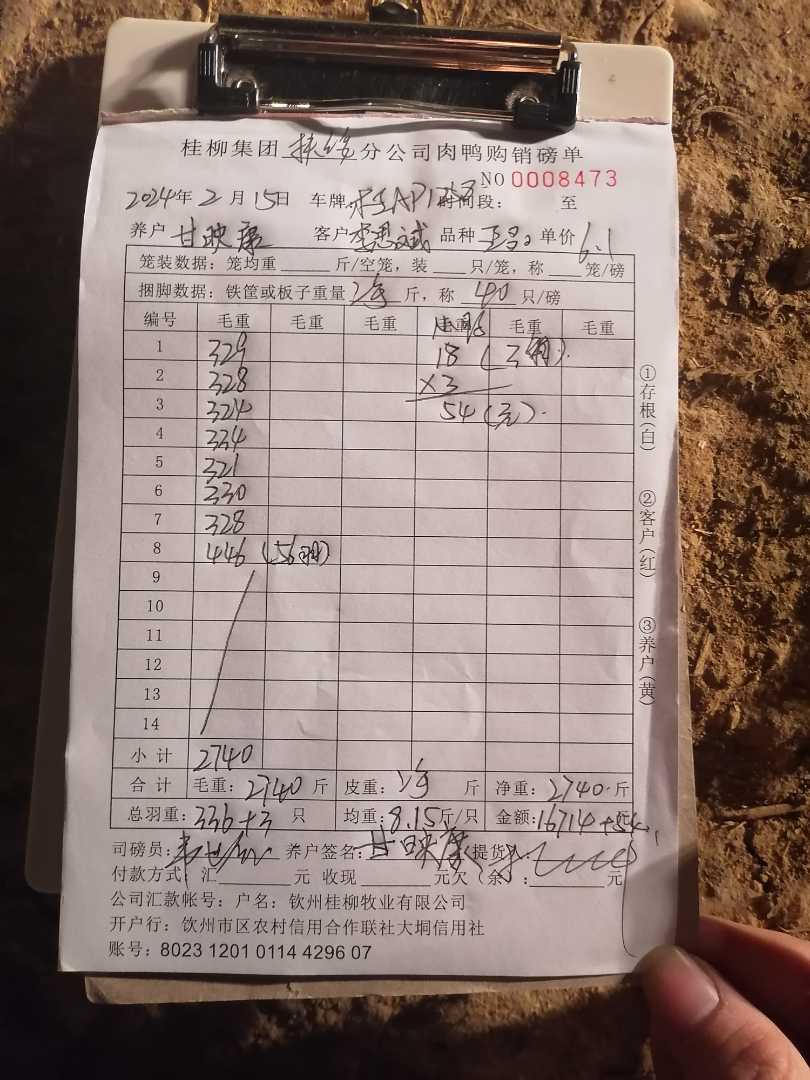 桂柳集团 扶绥 分公司肉鸭购销磅单
NO 0008473
2024年 2 月 15日 车牌: 时间段: 至
养户 甘映康 客户 品种 单价 6.1
笼装数据: 笼均重 斤/空笼, 装 只/笼, 称 笼/磅
捆脚数据: 铁筐或板子重量 净 斤, 称 40 只/磅
编号 毛重 毛重 毛重 毛重 毛重
1 329 18 (3
2 328 ×3
3 324 54 (元).
4 334
5 321
6 330
7 328
8 446 (56
9
10
11
12
13
14
小 计 2740
合 计 毛重: 2740 斤 皮重: 净 斤 净重: 2740 斤
总羽重: 336+3 只 均重: 8.15 斤/只 金额: 16714+54 元
司磅员: 养户签名: 甘映康 提货人:
付款方式: 汇 元 收现 元欠(余): 元
公司汇款帐号: 户名: 钦州桂柳牧业有限公司
开户行: 钦州市区农村信用合作联社大垌信用社
账号: 8023 1201 0114 4296 07
①存根(白)
②客户(红)
③养户(黄)